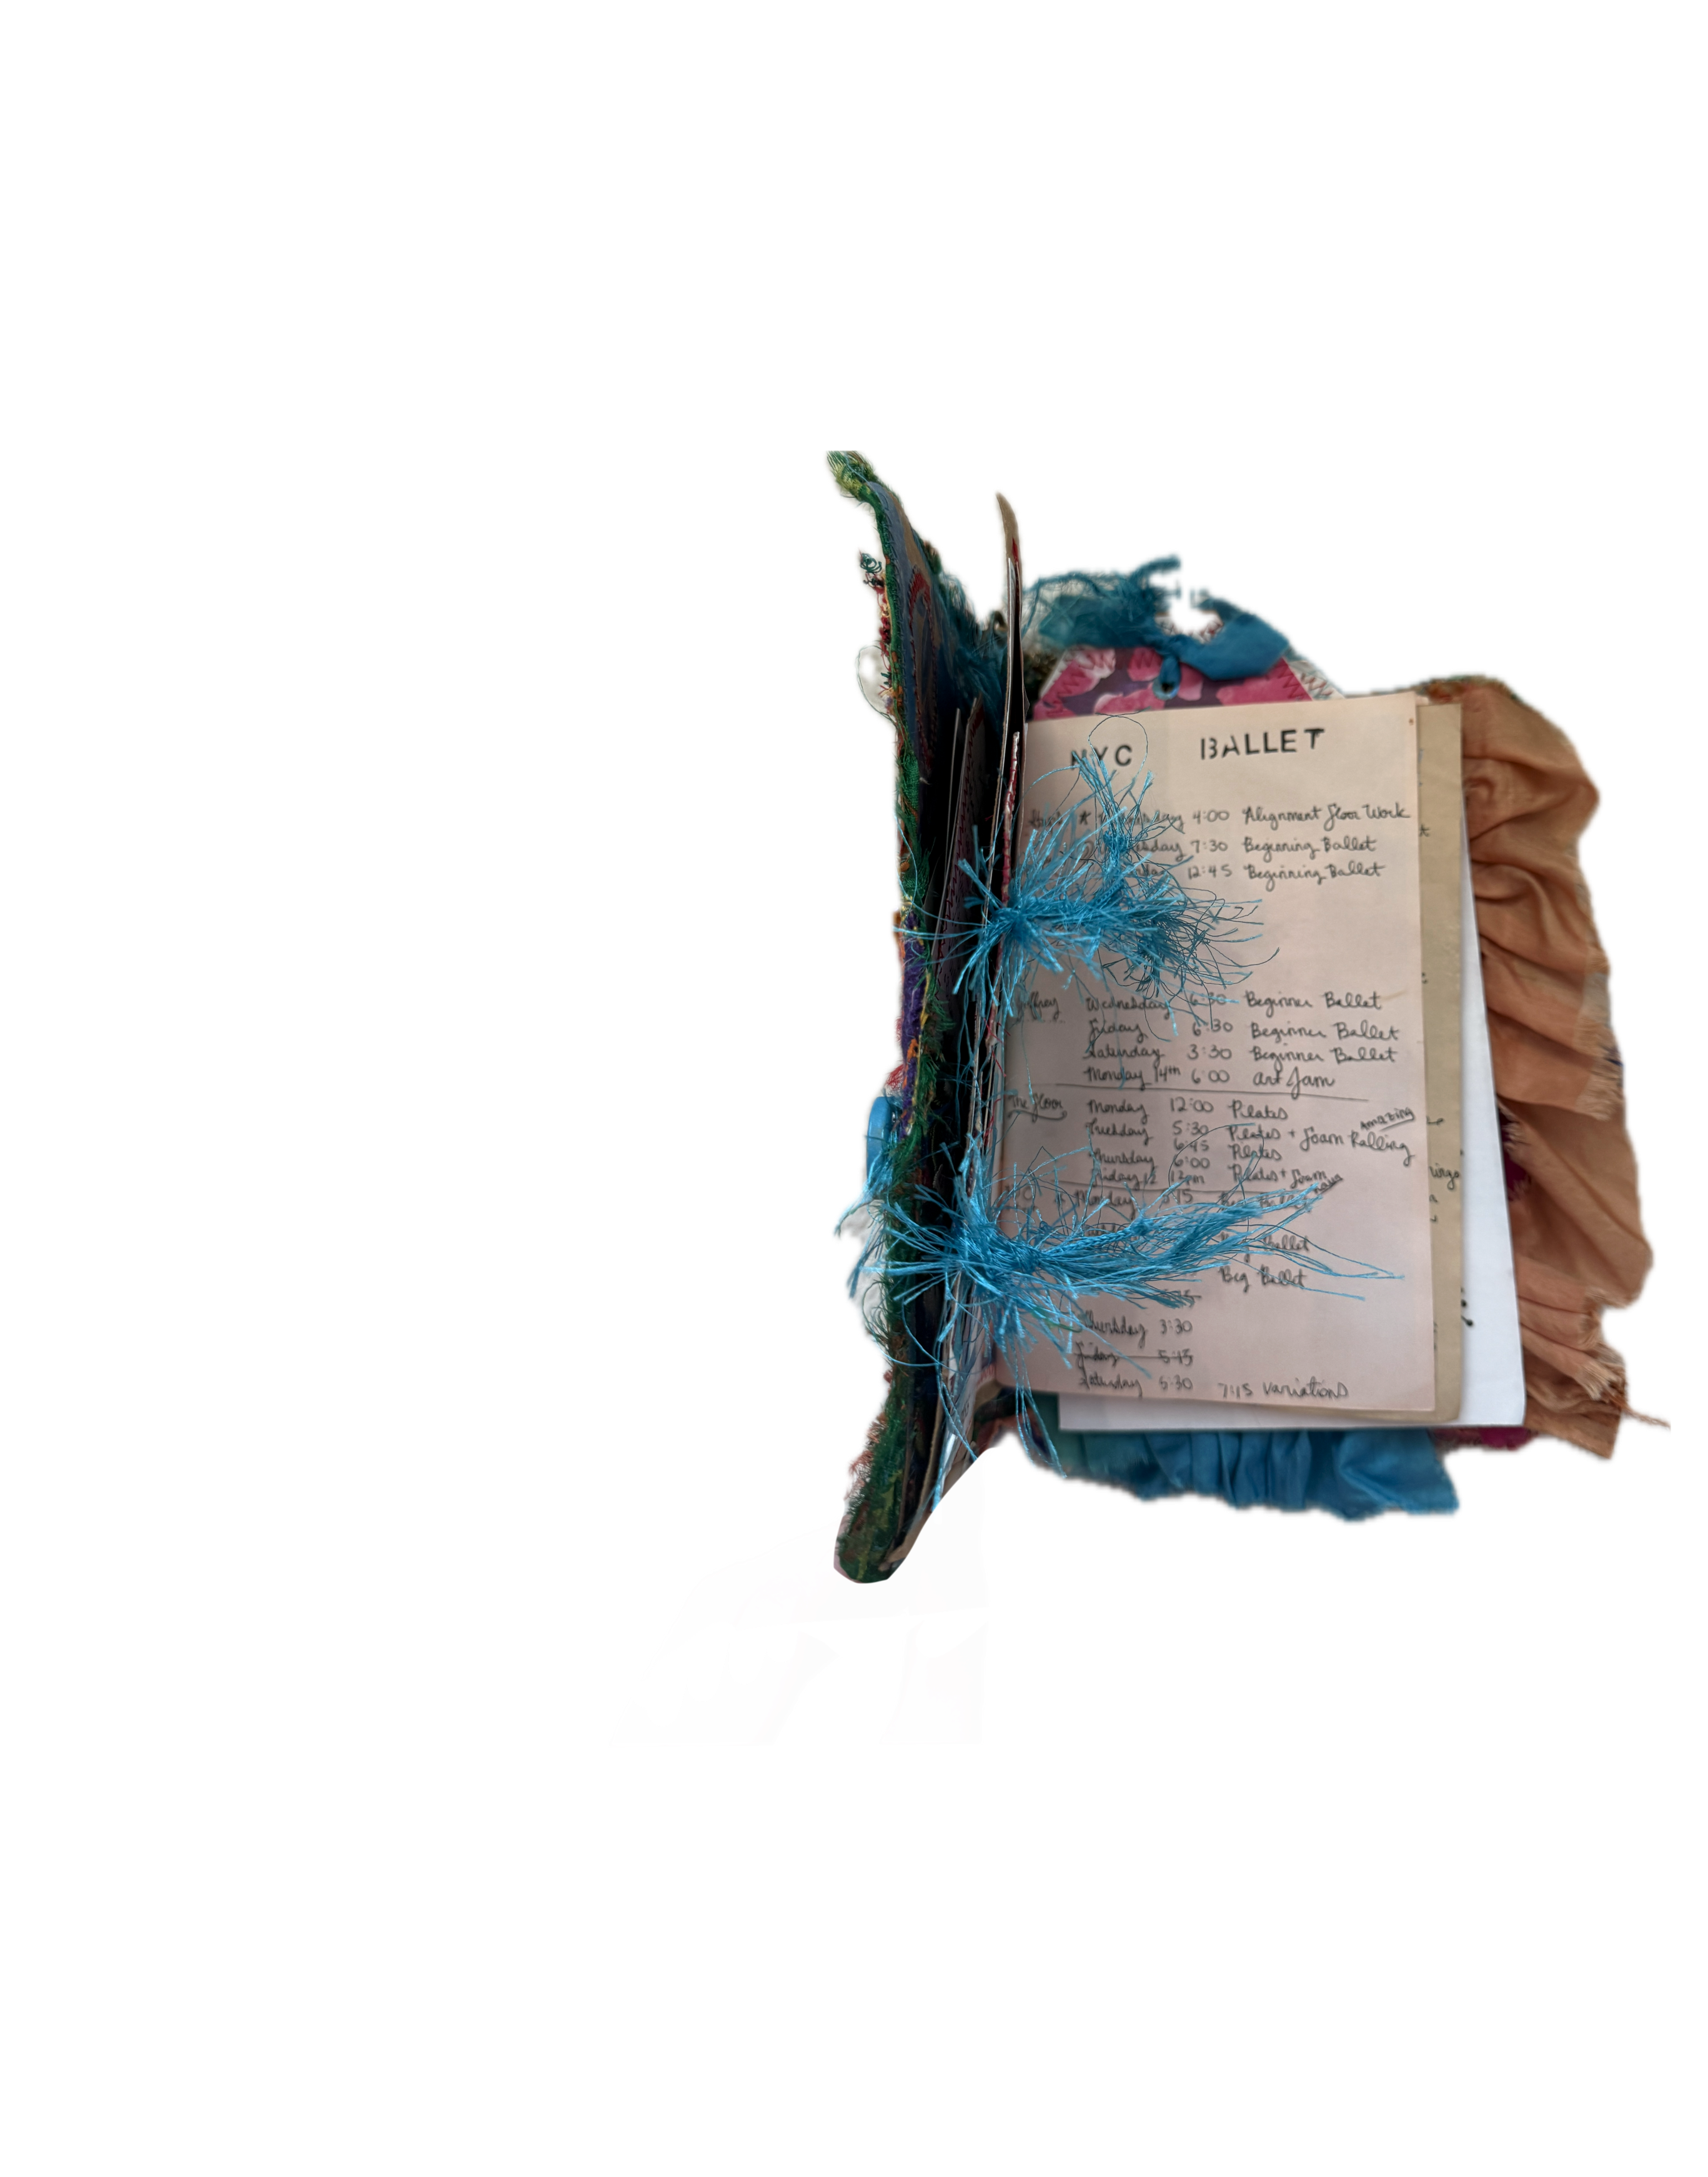 NYC BALLET
4:00 Alignment Floor Work
7:30 Beginning Ballet
12:45 Beginning Ballet
Wednesday 6:30 Beginner Ballet
Friday 6:30 Beginner Ballet
Saturday 3:30 Beginner Ballet
Monday 14th 6:00 Art Jam
The Floor Monday 12:00 Pilates
Amazing
Tuesday 5:30 Pilates + Foam Rolling
6:45 Pilates
Thursday 6:00
Friday 12 12pm Pilates + Foam
Monday
Ballet
Beg Ballet
Thursday 3:30
Friday 5:15
Saturday 5:30 7:15 Variations